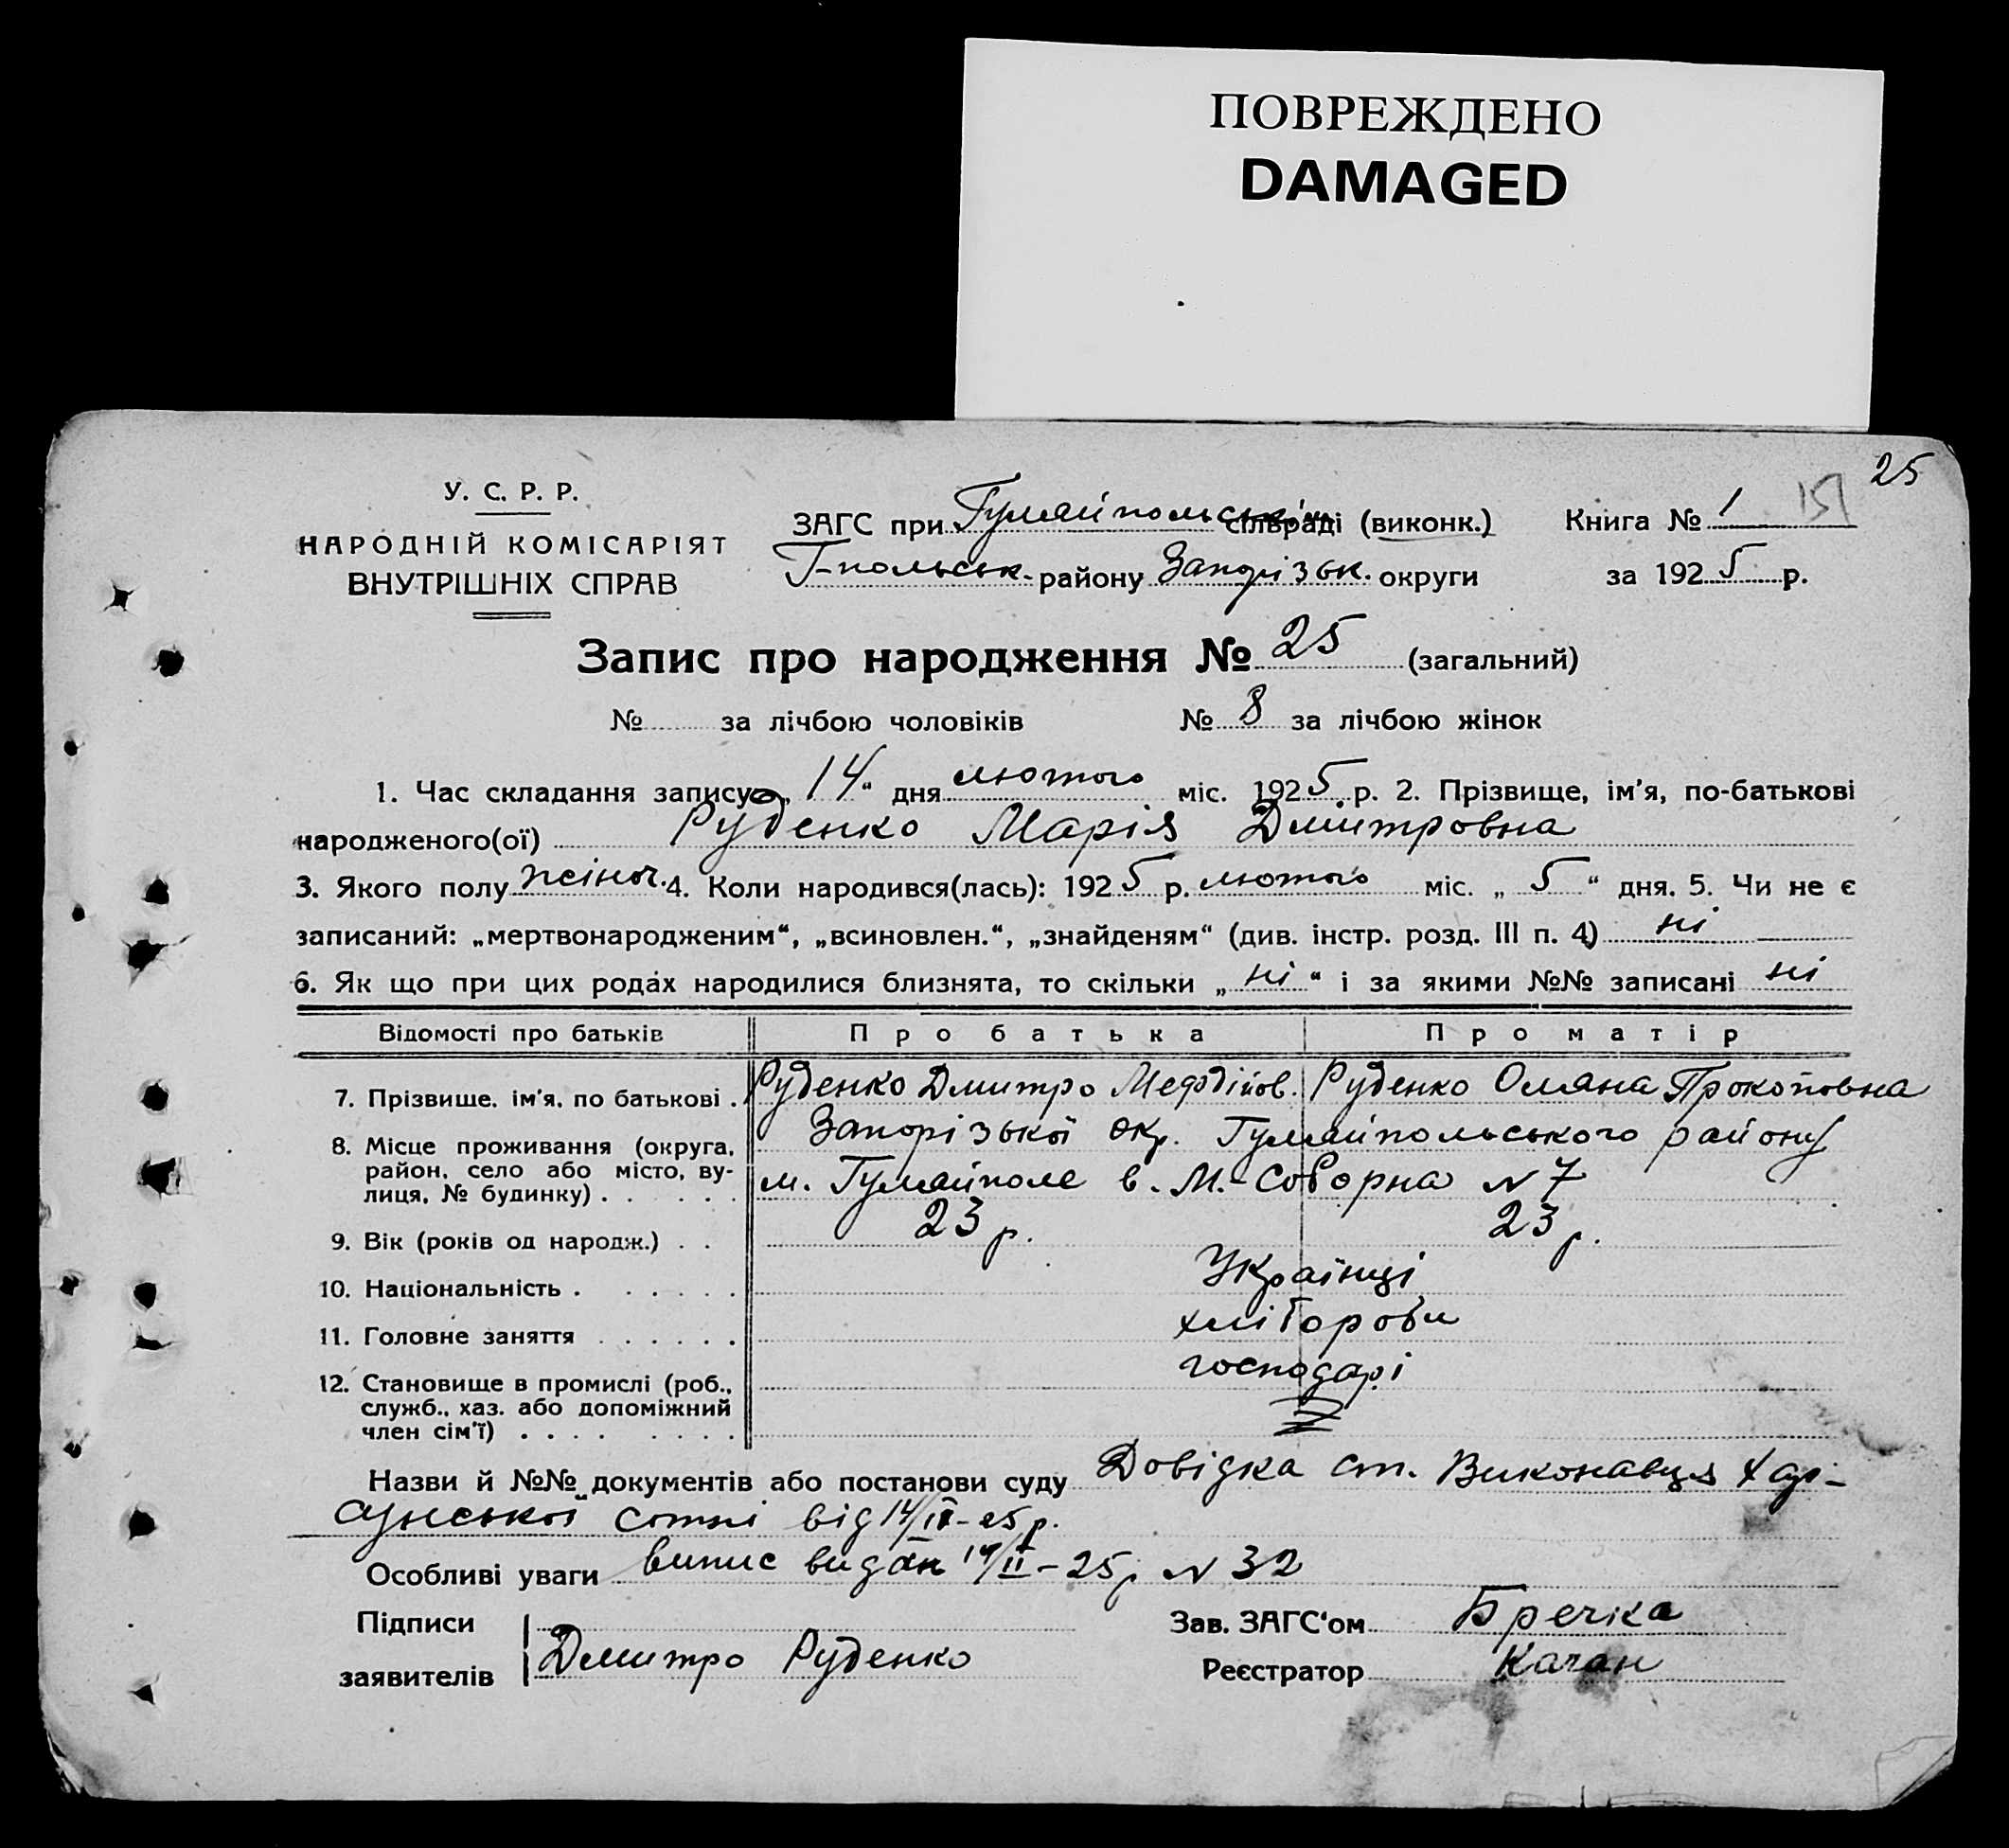 ПОВРЕЖДЕНО
DAMAGED
25
У. С. Р. Р.
НАРОДНІЙ КОМІСАРІЯТ
ВНУТРІШНІХ СПРАВ
ЗАГС при Гуляйпольськім сільраді (виконк.)
Книга № 1 151
Г-польськ. району Запоріз ьк. округи
за 1925 р.
Запис про народження № 25 (загальний)
№ за лічбою чоловіків № 8 за лічбою жінок
1. Час складання запису „ 14 “ дня лютого міс. 1925 р. 2. Прізвище, ім’я, по-батькові
народженого(ої) Руденко Марія Дмитровна
3. Якого полу жіноч. 4. Коли народився(лась): 1925 р. лютого міс. „ 5 “ дня. 5. Чи не є
записаний: „мертвонародженим“, „всиновлен.“, „знайденям“ (див. інстр. розд. III п. 4) ні
6. Як що при цих родах народилися близнята, то скільки „ ні “ і за якими №№ записані ні
Відомості про батьків Про батька Про матір
7. Прізвище, ім’я, по батькові . Руденко Дмитро Мефдійов. Руденко Оляна Прокоповна
8. Місце проживання (округа, район, село або місто, вулиця, № будинку) . . . . . Запорізької окр. Гуляйпольського району
м. Гуляйполе в. М.-Соборна № 7
9. Вік (років од народж.) . . 23 р. 23 р.
10. Національність . . . . . . Українці
11. Головне заняття . . . . . . хлібороби
12. Становище в промислі (роб., служб., хаз. або допоміжний член сім’ї) . . . . . . . . господарі
Назви й №№ документів або постанови суду Довідка ст. Виконавця
сотні від 14/II-25 р.
Особливі уваги випис видан 14/II-25 р № 32
Підписи
заявителів Дмитро Руденко
Зав. ЗАГС‘ом Бречка
Реєстратор Качан